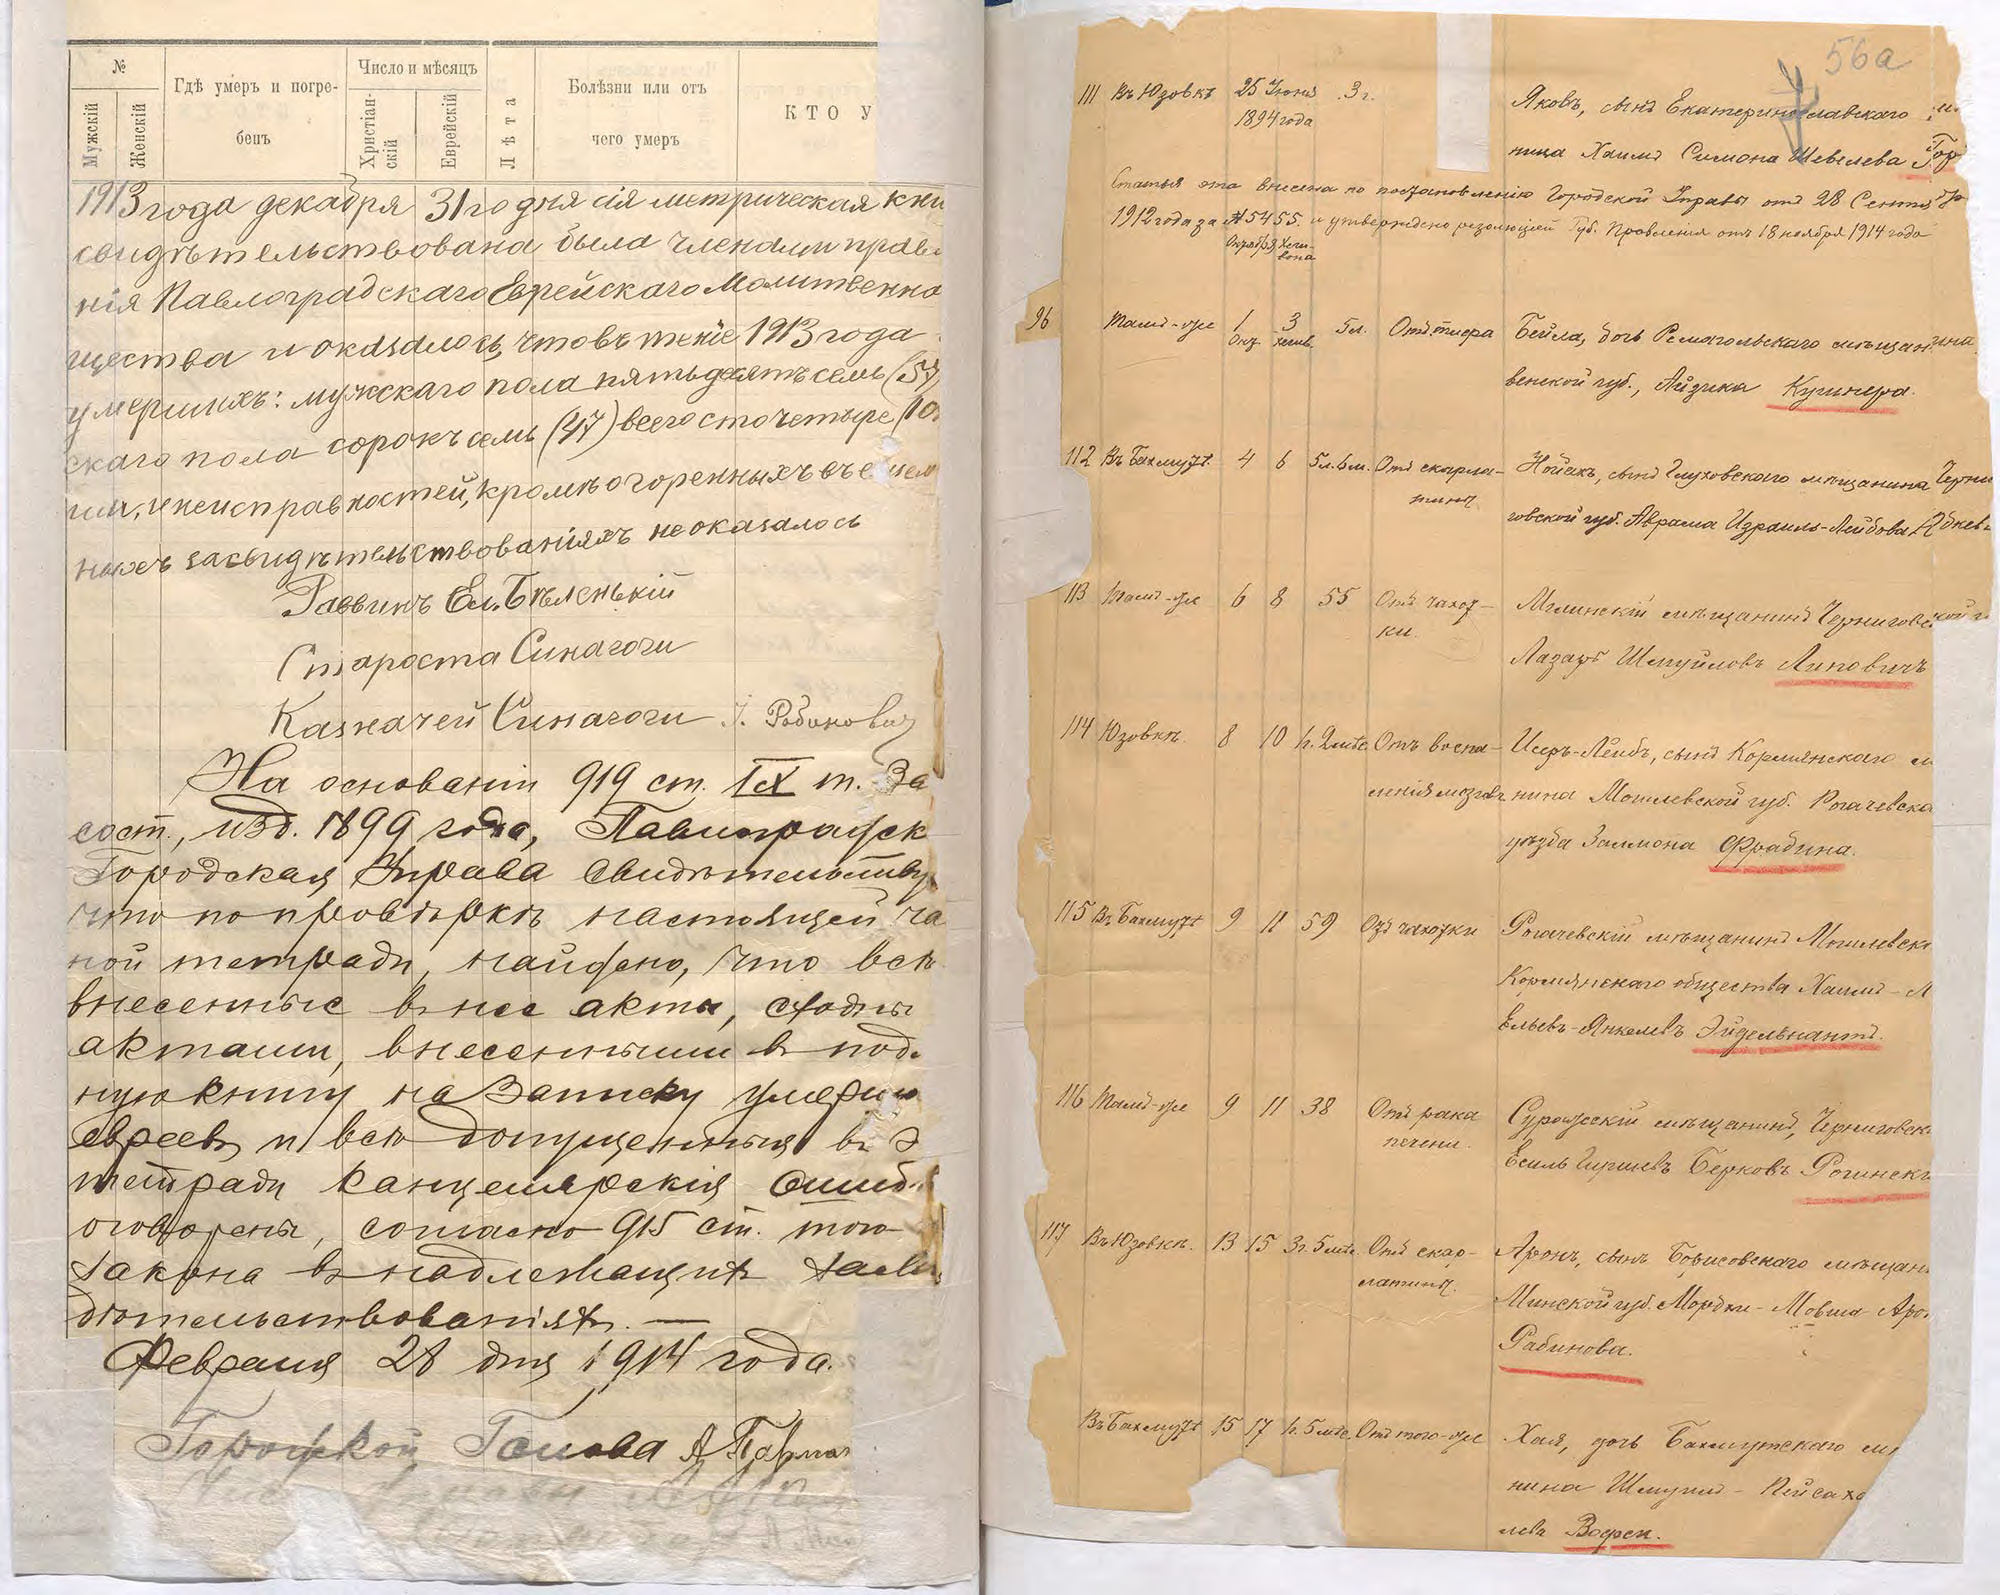 №
Мужскій
Женскій
Гдѣ умеръ и погре-
бенъ
Число и мѣсяцъ
Христіан-
скій
Еврейскій
Лѣта
Болѣзни или отъ
чего умеръ
КТО У
1913 года декабря 31го дня сія метрическая кни
свидѣтельствована была членами прав
нія Павлоградскаго Еврейскаго Молитвенно
щества и оказалось, что въ теніе 1913 года
умершихъ: мужескаго пола пятьдесятъ семь (57)
скаго пола сорокъ семь (47) всего сто четыре (10
неисправностей, кромѣ оговоренныхъ въ
засвидѣтельствованіяхъ не оказалось
Раввинъ Ел. Бѣленькій
Староста Синагоги
Казначей Синагоги І. Рабиновичъ
На основаніи 919 ст. IX т. За
сост., изд. 1899 года, Павлоградск
Городская Управа свидѣтельству
что по провѣркѣ настоящей ча
ной тетради, найдено, что всѣ
внесенные въ нее акты, сходны
актами, внесенными въ подл
ную книгу на записку умерш
евреевъ и всѣ допущенныя въ э
тетради канцелярскія ошибк
оговорены, согласно 915 ст. того
закона въ надлежащихъ засви
дѣтельствованіяхъ. —
Февраля 28 дня 1914 года.
Городской Голова А.
56а
111 Въ Юзовкѣ 25 Іюня 3 г. Яковъ, сынъ Екатеринославскаго
1894 года
нина Хаима Симона Шевелева Гор
Статья эта внесена по постановленію Городской Управы отъ 28 Сентяб
1912 года за № 5455. и утверждено резолюціей Губ. Правленія отъ 18 ноября 1914 года
Октября Хеш-
вона
96 Тамъ-же 1 3 5 л. Отъ тифа Бейла, дочь Ремигольскаго мѣщанина
Окт. хешв.
венской губ., Айзика Кушнера.
112 Въ Бахмутѣ 4 6 5 л. 6 м. Отъ скарла- Нойахъ, сынъ Глуховскаго мѣщанина Черни
тины
говской губ. Аврама Израиль-Лейбова
113 Тамъ-же 6 8 55 Отъ чахот- Мглинскій мѣщанинъ Черниговской г
ки.
Лазарь Шмуйловъ Липовичъ
114 Юзовкѣ 8 10 1г. 2 мѣс. Отъ воспа- Исеръ-Лейбъ, сынъ Кормянскаго м
ленія мозга нина Могилевской губ. Рогачевска
уѣзда Залмона Фрадина.
115 Въ Бахмутѣ 9 11 59 Отъ чахотки Рогачевскій мѣщанинъ Могилевск
Кормянскаго общества Хаимъ-Л
Ельевъ-Янкелевъ Эйдельнантъ.
116 Тамъ-же 9 11 38 Отъ рака Суражскій мѣщанинъ, Черниговск
печени.
Есиль Гиршевъ Берковъ Рогинск
117 Въ Юзовкѣ. 13 15 3 г. 5 мѣс. Отъ скар- Аронъ, сынъ Борисовскаго мѣщан
латины.
Минской губ. Мордки-Мовша Аро
Рабинова.
Въ Бахмутѣ 15 17 1г. 5 мѣс. Отъ того-же Хая, дочь Бахмутскаго м
нина Шмуила-Пейсахо
лева Вофси.